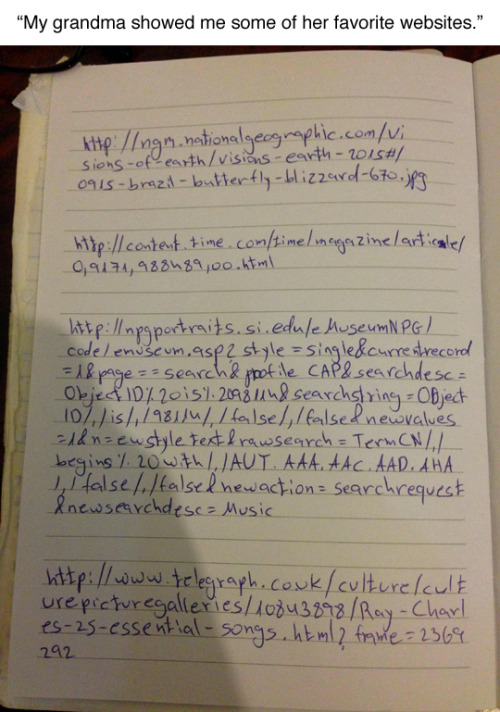 “My grandma showed me some of her favorite websites.”
http://ngm.nationalgeographic.com/vi
sions-of-earth/visions-earth-2015#/
0915-brazil-butterfly-blizzard-670.jpg
http://content.time.com/time/magazine/article/
0,9171,988489,00.html
http://npgportraits.si.edu/eMuseumNPG/
code/emuseum.asp?style=single&currentrecord
=1&page==search&profile CAP&searchdesc=
Object ID%20is%2098114&searchstring=OBject
ID/,/is/,/98114/,/false/,/false&newvalues
=1&n=ewstyle text&rawsearch=TermCN/,/
begins%20with/,/AUT.AAA.AAC.AAD.AHA
/,/false/,/false&newaction=searchrequest
&newsearchdesc=Music
http://www.telegraph.co.uk/culture/cult
urepicturegalleries/10843898/Ray-Charl
es-25-essential-songs.html?frame=2369
292